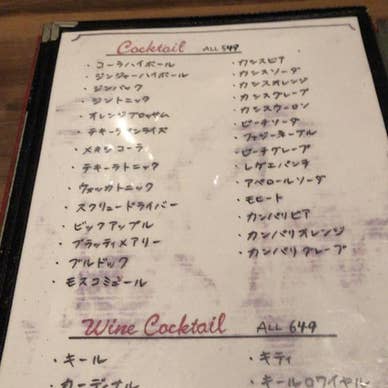 Cocktail ALL 549
・コーラハイボール
・ジンジャーハイボール
・ジンバック
・ジントニック
・オレンジブロッサム
・テキーラサンライズ
・メキシコーラ
・テキーラトニック
・ウォッカトニック
・スクリュードライバー
・ビックアップル
・ブラッティメアリー
・ブルドック
・モスコミュール
・カシスビア
・カシスソーダ
・カシスオレンジ
・カシスグレープ
・カシスウーロン
・ピーチソーダ
・ファジーネーブル
・ピーチグレープ
・レゲエパンチ
・アペロールソーダ
・モヒート
・カンパリビア
・カンパリオレンジ
・カンパリグレープ
Wine Cocktail ALL 649
・キール
・カーディナル
・キティ
・キールロワイヤル